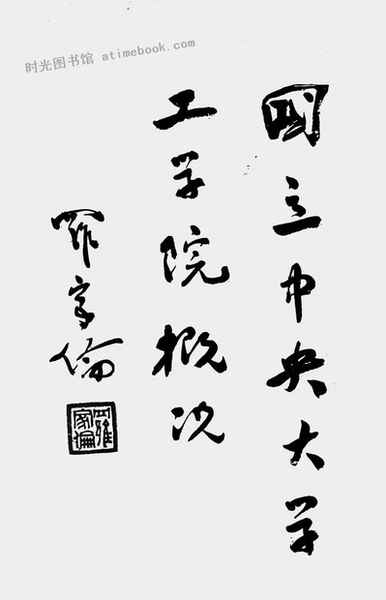 时光图书馆 atimebook.com
國立中央大学
工学院概况
羅家倫
羅家倫